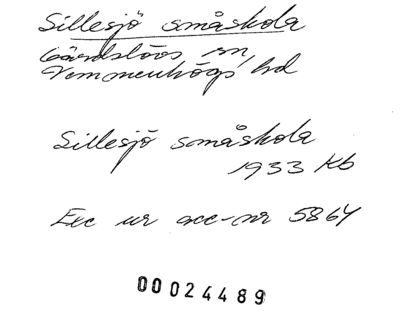 Sillesjö småskola
Gärdslövs sn,
Vemmenhögs hd
Sillesjö småskola
1933 Kb
Exc ur acc-nr 5864
00024489